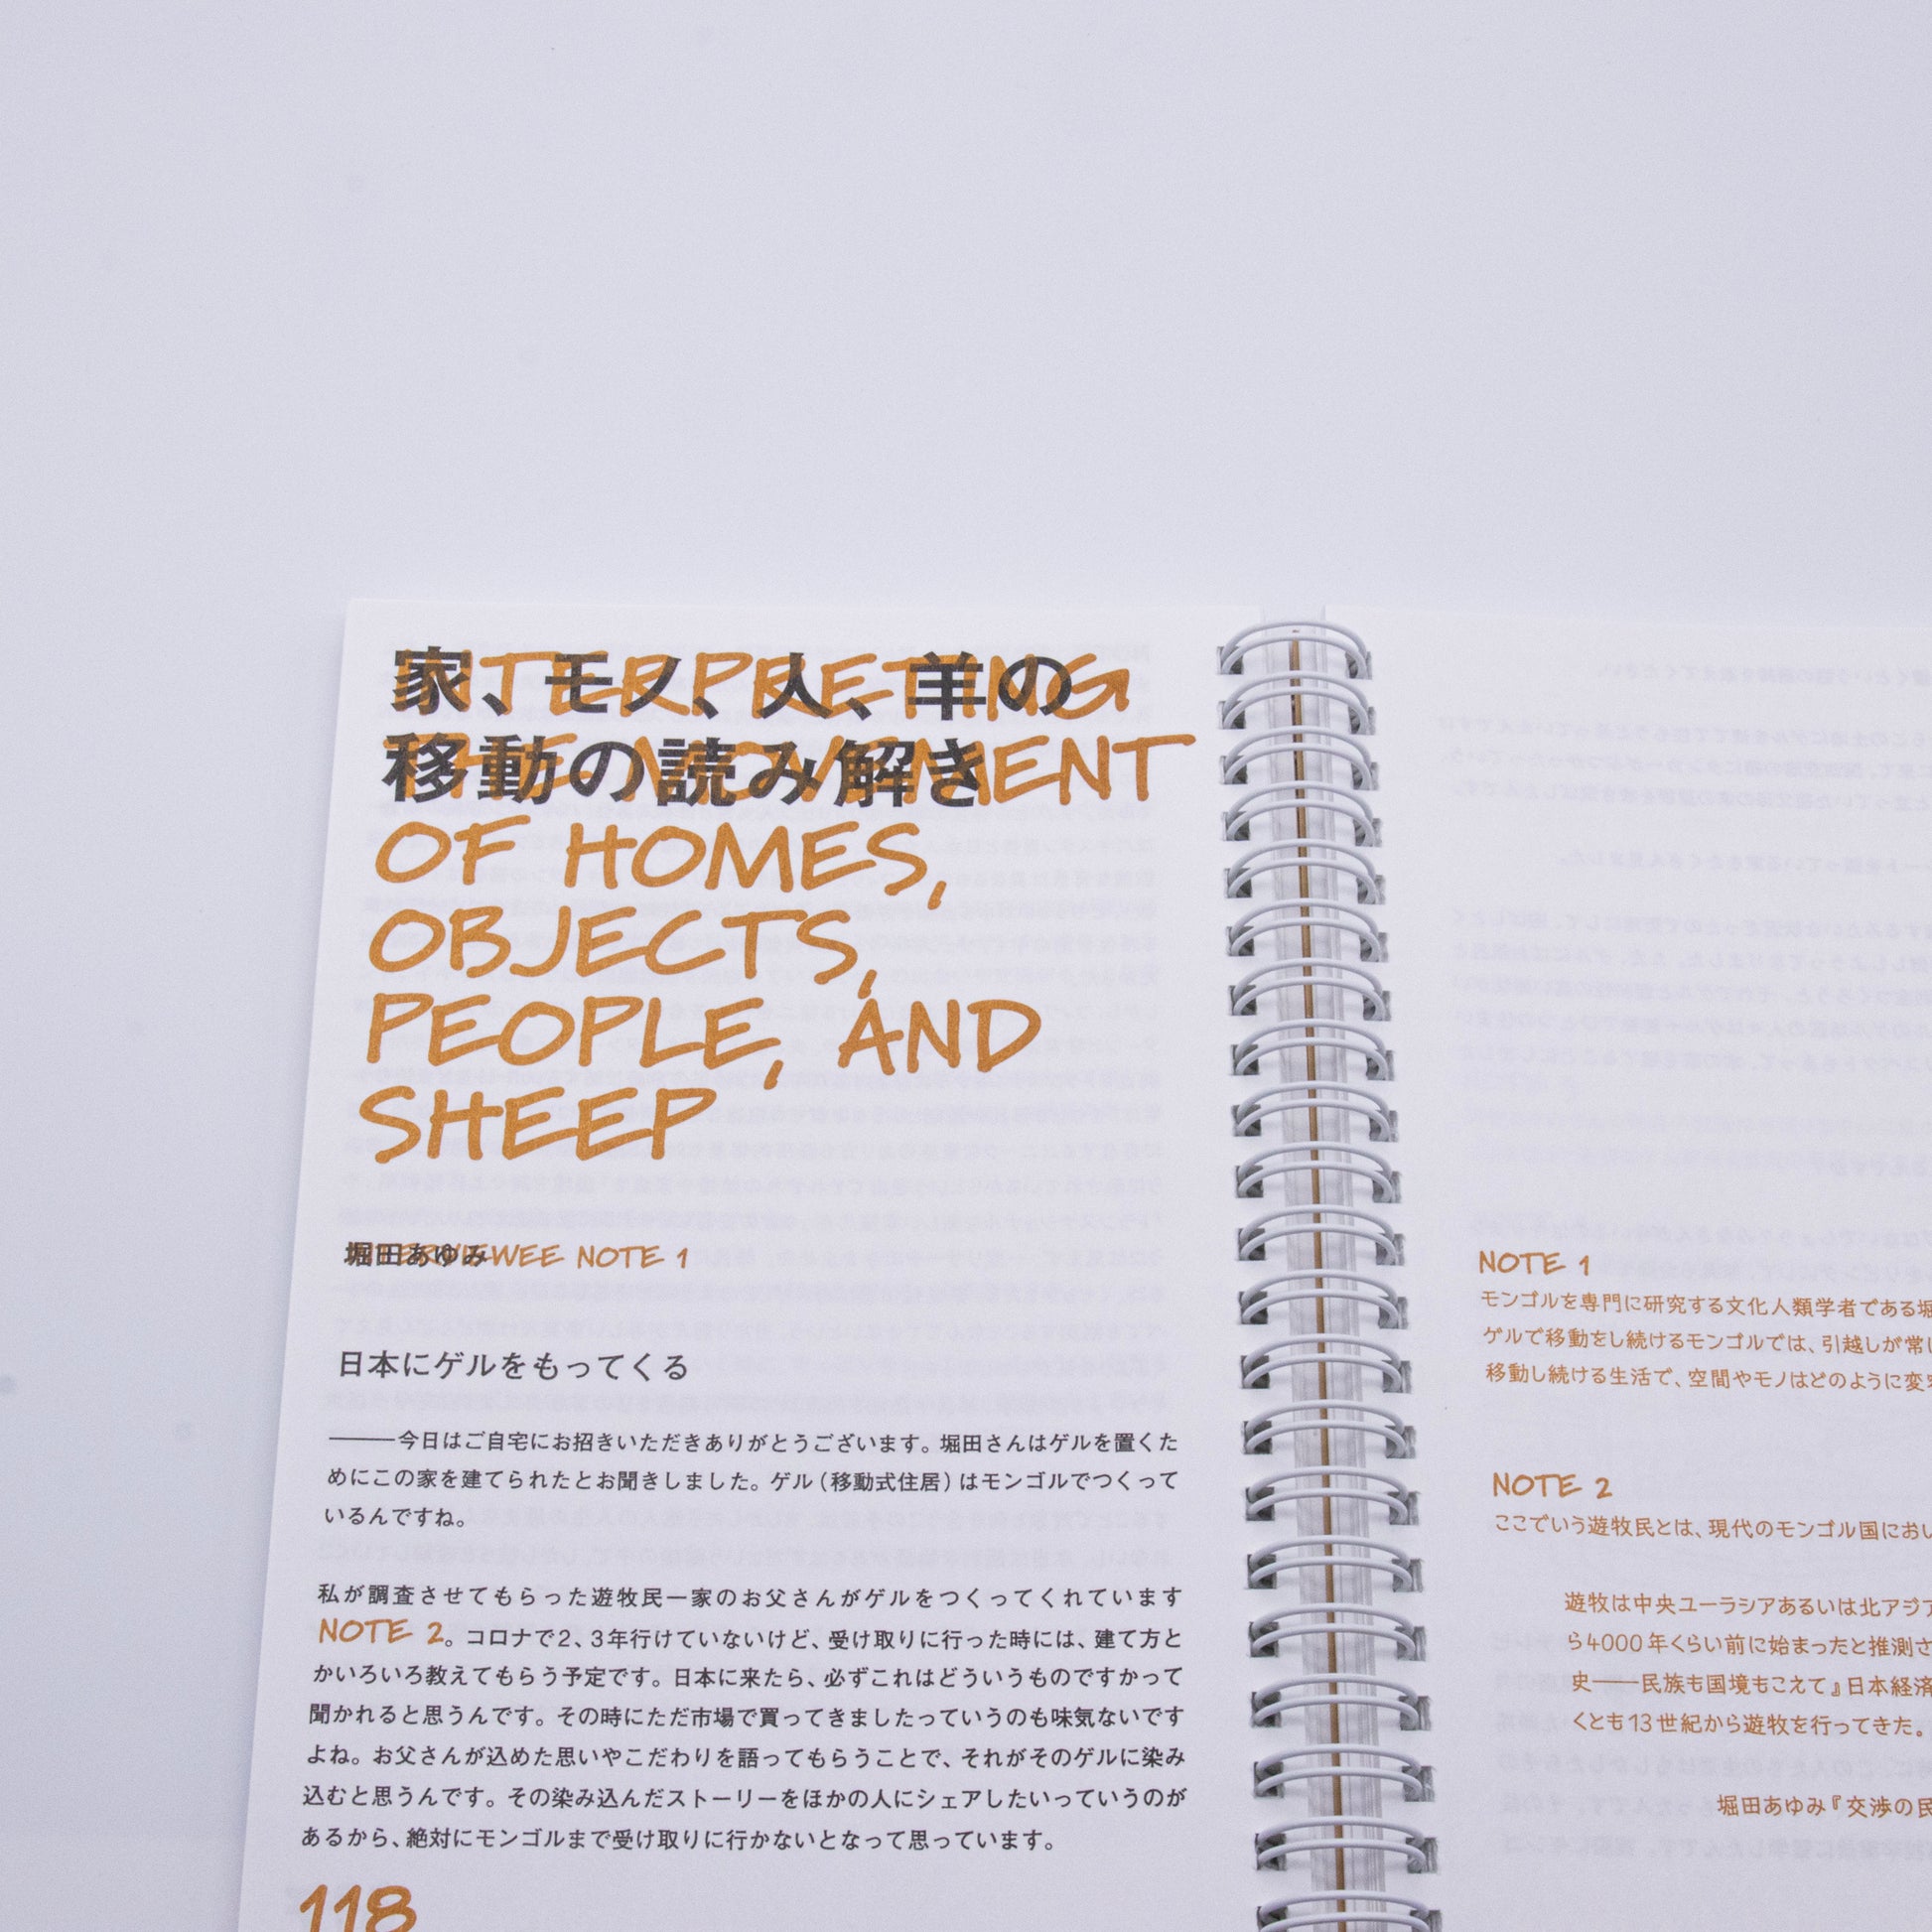 家、モノ、人、羊の
移動の読み解き
INTERPRETING
THE MOVEMENT
OF HOMES,
OBJECTS,
PEOPLE, AND
SHEEP
堀田あゆみ
INTERVIEWEE NOTE 1
日本にゲルをもってくる
――今日はご自宅にお招きいただきありがとうございます。堀田さんはゲルを置くた
めにこの家を建てられたとお聞きしました。ゲル（移動式住居）はモンゴルでつくって
いるんですね。
私が調査させてもらった遊牧民一家のお父さんがゲルをつくってくれています
NOTE 2。コロナで2、3年行けていないけど、受け取りに行った時には、建て方と
かいろいろ教えてもらう予定です。日本に来たら、必ずこれはどういうものですかって
聞かれると思うんです。その時にただ市場で買ってきましたっていうのも味気ないです
よね。お父さんが込めた思いやこだわりを語ってもらうことで、それがそのゲルに染み
込むと思うんです。その染み込んだストーリーをほかの人にシェアしたいっていうのが
あるから、絶対にモンゴルまで受け取りに行かないとなって思っています。
118
NOTE 1
モンゴルを専門に研究する文化人類学者である堀
ゲルで移動をし続けるモンゴルでは、引越しが常に
移動し続ける生活で、空間やモノはどのように変
NOTE 2
ここでいう遊牧民とは、現代のモンゴル国におい
遊牧は中央ユーラシアあるいは北アジア
ら4000年くらい前に始まったと推測さ
史――民族も国境もこえて』日本経済
くとも13世紀から遊牧を行ってきた。
堀田あゆみ『交渉の民